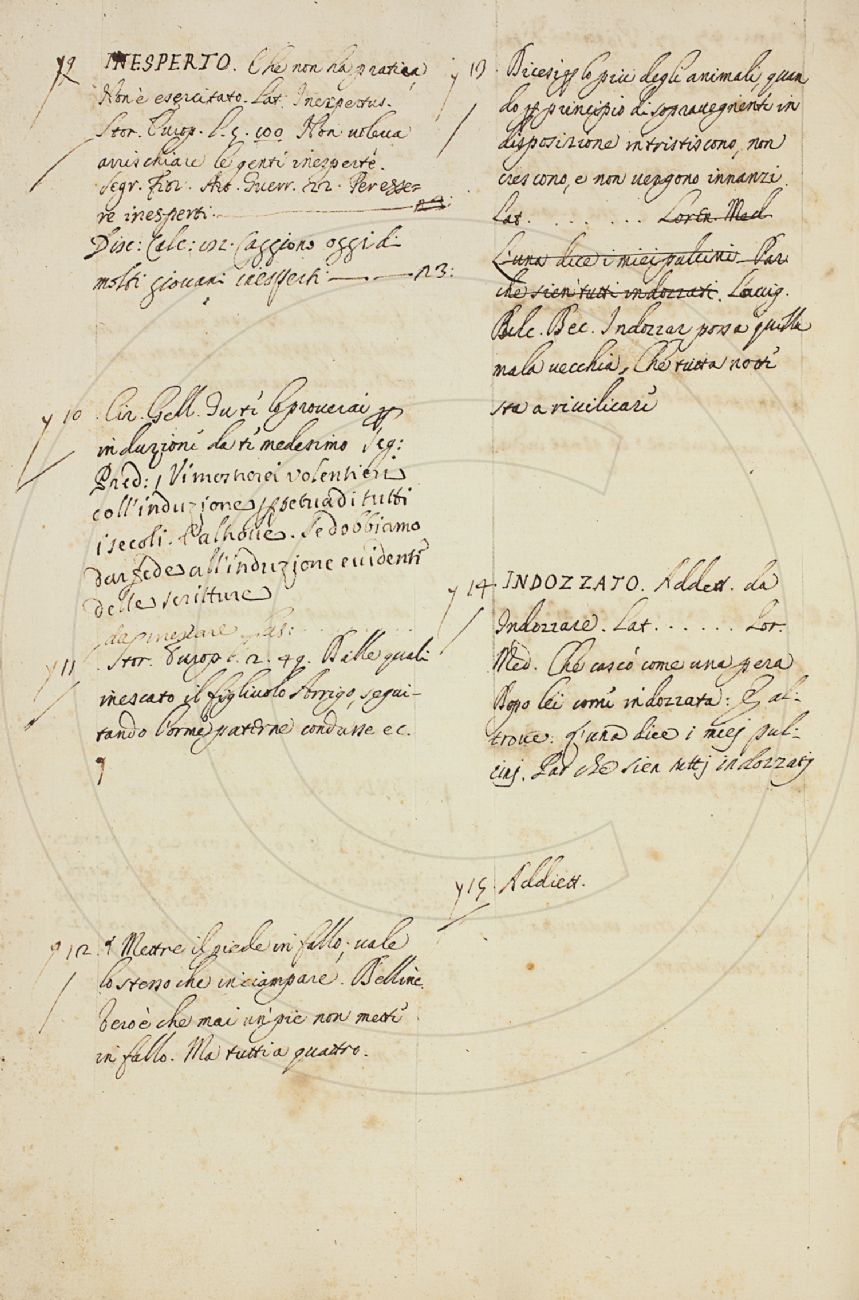 y 9 INESPERTO. Che non ha pratica,
Non è esercitato. Lat. Inexpertus.
Stor. Europ. l. 5. 100 Non voleva
arrischiare le genti inesperte.
Segr. Fior. Art. Guerr. 22. Per esse=
re inesperti.
Disc: Calc: 12. Caggiono oggi di
molti giovani inesperti 23:
y 10 Cir. Gell. Tu ti lo proverai p
induzione da ti medesimo Seg:
Pred: Vi mostrerei volentieri
coll'induzione ppetua di tutti
i secoli. E altrove. Se dobbiamo
dar fede all'induzione evidenti
delle scritture
da inescare
y 11 Stor. Europ. 2. 49. Dalle quali
inescato il figliuolo Arrigo, segui-
tando l'orme paterne condusse ec.
9
9 12. Mettre il piede in fallo, vale
lo stesso che inciampare. Bellinc.
Vero è che mai un piè non metti
in fallo. Ma tutti a quattro.
y 13 Dicesi p lo più degli animali, quan
do p principio di sopravegnente in
disposizione intristiscono, non
crescono, e non vengono innanzi.
Lat. . . . . . . . Loren. Med.
L'una dice i miei pulcini Par
che sien tutti indozzati. Luig.
Pulc. Bec. Indozzar possa quella
mala vecchia, Che tutta notte
sta a rivilicare
y 14 INDOZZATO. Addiett. da
Indozzare. Lat. . . . . . . Lor.
Med. Che cascò come una pera
Dopo lei com' indozzata: E al-
trove: L'una dice i miej pul-
cinj. Par che sien tuttj indozzatj
y 15. Addiett.